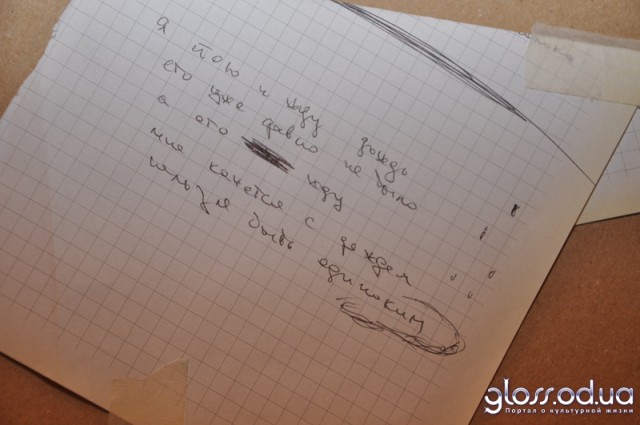 я пою и жду дождь
его уже давно не было
а его жду
мне кажется с дождем
нельзя быть одиноким
gloss.od.ua
Портал о культурной жизни